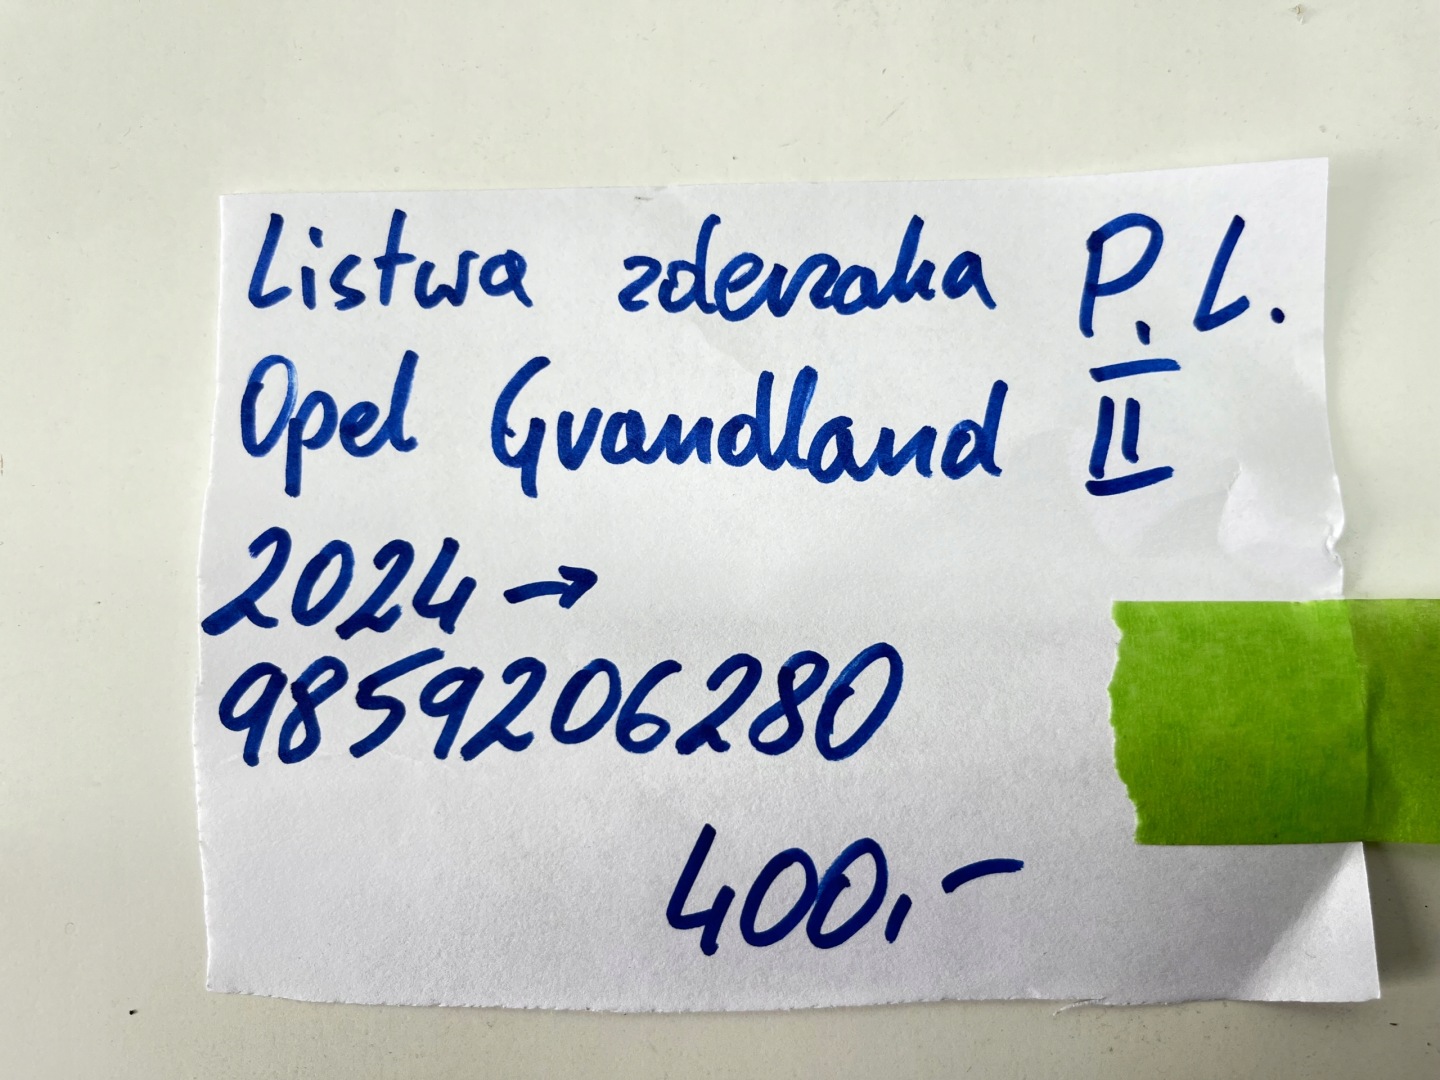 Listwa zderzaka P. L.
Opel Grandland II
2024 →
9859206280
400,-